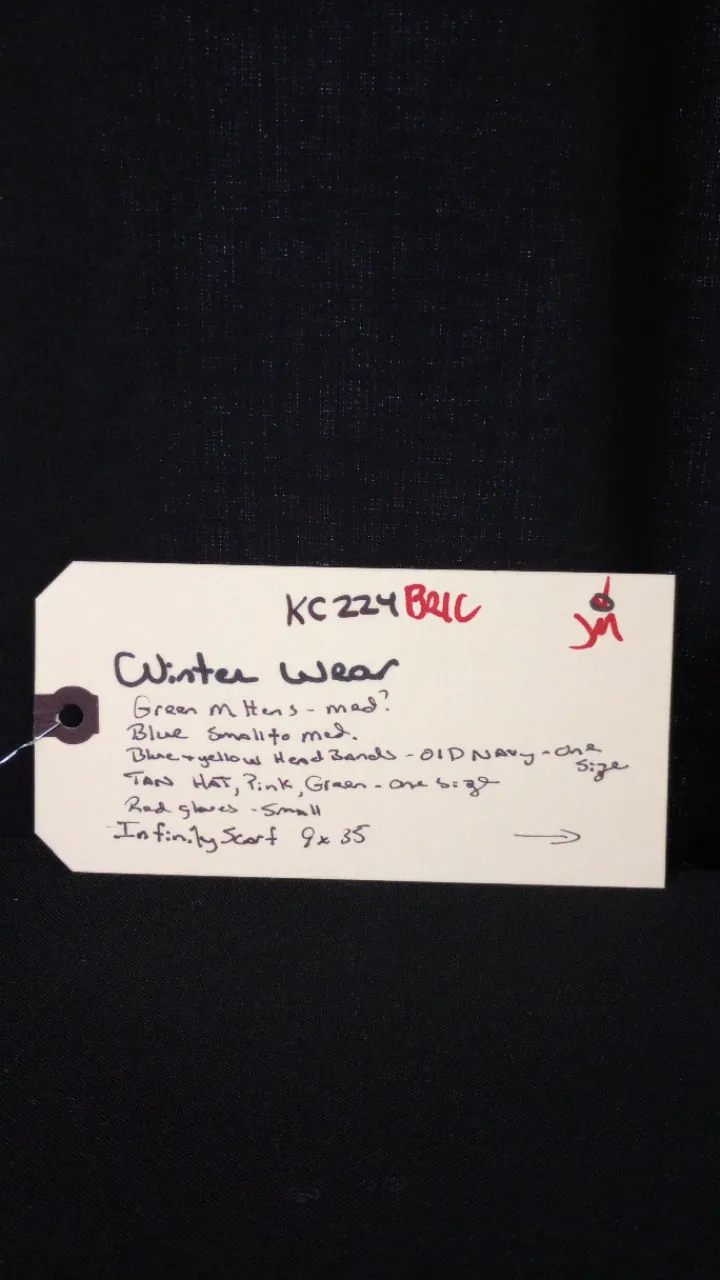 KC224 BRIC
JM
Winter Wear
Green mittens - med?
Blue Small to med.
Blue + yellow Head Bands - OlD NAvy - One Size
TAN HAT, Pink, Green - one size
Red gloves - Small
Infinity Scarf 9x35